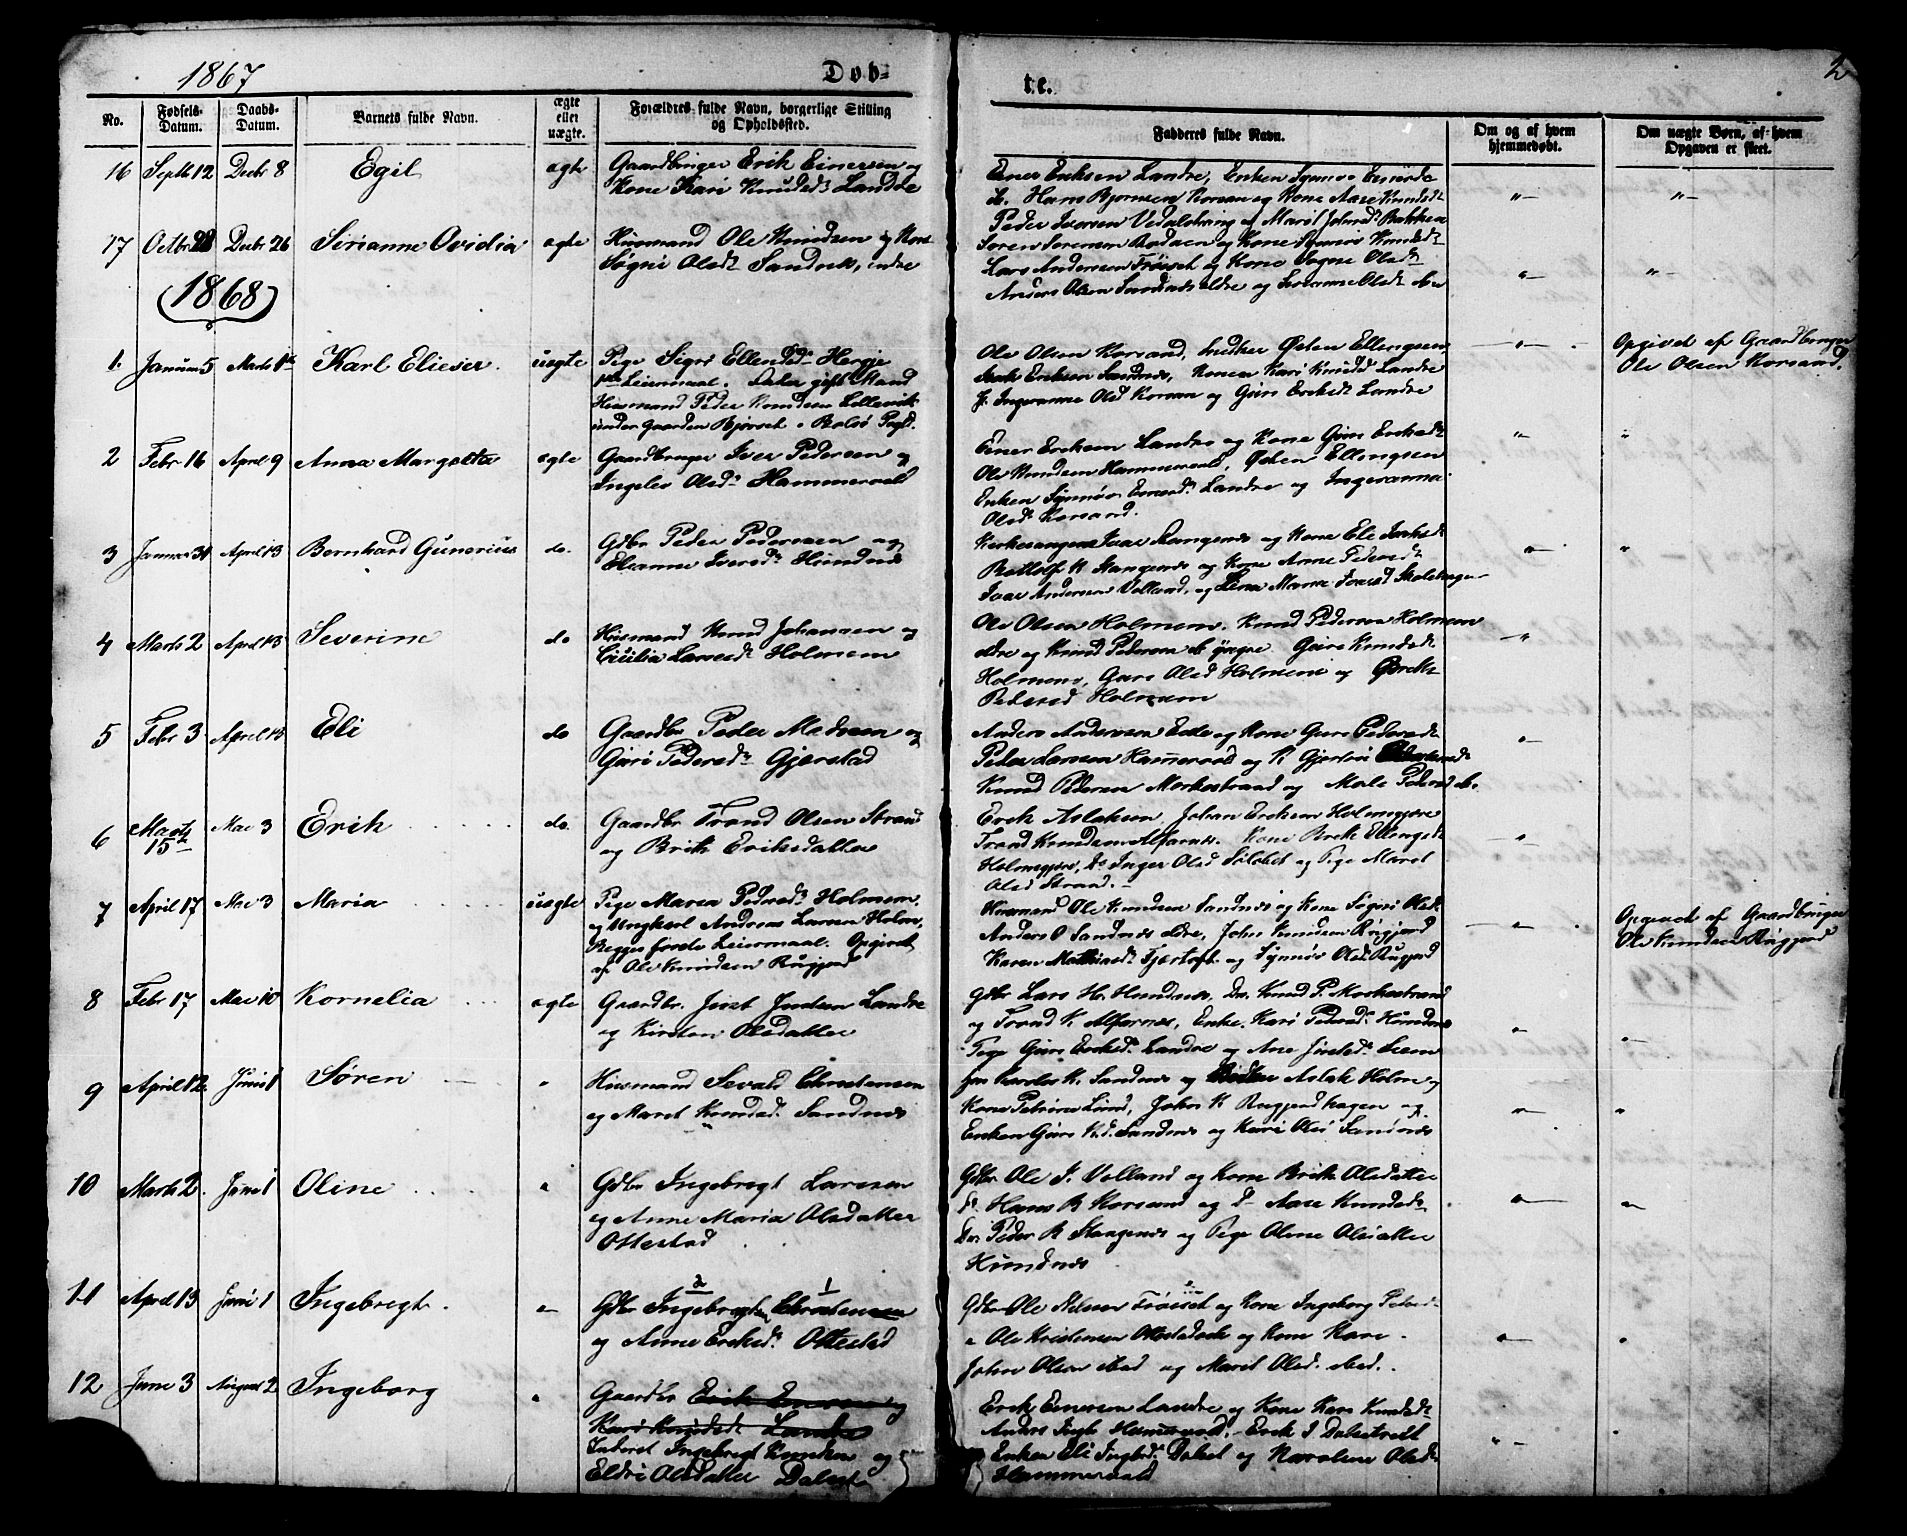 1867
Døb-
te.
2
No.
Fødsels-Datum.
Daabs-Datum.
Barnets fulde Navn.
ægte eller uægte.
Forældres fulde Navn, borgerlige Stilling og Opholdssted.
Fadderes fulde Navn.
Om og af hvem hjemmedøbt.
Om uægte Børn, af hvem Opgaven er skeet.
16 Septb 12 Decbr 8 Egil ægte
Gaardbruger Erik Einersen og
Kone Kari Knudsd. Landre
Einer Eriksen Landre, Enken Synnøve
do. Hans Bjørnsen Korsan og Kone Aase Knudsd.
Peder Iversen og Marit Johnsd. Bakken
17 Octbr 28 Decbr 26 Serianne Ovidia ægte
Huusmand Ole Knudsen og Kone
Søgni Olsd. Sandnes, indre
Søren Sørensen og Kone Synnøv Knudsd.
Lars Andersen Frøiset og Kone Olsd.
Anders Olsen Sandnes eldre og Serianne Olsd. do
(1868)
1. Januar 5 Marts 1ste Karl Elieser. uægte
Pige Signi Ellendsd. Herje
1ste Leiermaal. Dater gift Mand
Huusmand Peder Knudsen
under Gaarden Bjørset i Bolsø Pgld.
Ole Olsen Korsand, Østen Ellingsen,
Erik Eriksen Sandnes, Konen Kari Knudsd Landre
P. Ingeranna Olsd Korsan og Guri Eriksd. Landre
Opgivet af Gaardbruger
Ole Olsen Korsand.
2 Febr. 16 April 9 Anna Margretha ægte
Gaardbruger Iver Pedersen og
Ingelev Olsd. Hammervold
Einer Eriksen Landre og Kone Guri Eriksd.
Ole Knudsen Hammervold, Østen Ellingsen
Enken Synnøv Einersd. Landre og Ingeranna
Olsd. Korsand.
3 Januar 31 April 13 Bernhard Gunerius do.
Gdbr Peder Pedersen og
Elianne Iversd. Hundnes
Kirkesanger Ivar Stangenes og Kone Eli
Botolf K Stangenes og Kone Anne Pedersd.
Ivar Andersen Volland, og Lina Marie Ivarsd Skolehagen
4 Marts 2 April 13 Severine do
Huusmand Knud Johansen og
Cicilia Larsd. Holmem
Ole Olsen Holmem. Knud Pedersen Holmem
eldre og Knud Pedersen do yngre. Guri Knudsd.
Holmem, Guri Olsd Holmem og
Pedersd Holmem
5 Febr 3 April 13 Eli do
Gaardbr Peder Madsen og
Guri Pedersd. Gjerstad
Anders Andersen og Kone Guri Pedersd.
Peder Larsen Hammervold og K Gjertru
Knud Pedersen Morkestrand og Male Pedersd do.
6 Marts 15de Mai 3 Erik do.
Gaardbr Trond Olsen Strand
og Brit Eriksdatter
Erik Aslaksen, Johan Eriksen Holmgjære
Trond Knudsen Alfarnes. Kone Brit Ellingsd.
Holmegjære, Do Inger Olsd Sølsnet og Pige Marit
Olsd Strand.
7 April 17 Mai 3 Maria uægte
Pige Maria Pedersd. Holmem.
og Ungkarl Andreas Larsen Holm,
Begges første Leiermaal. Opgivet
af Ole Knudsen Rugjord
Huusmand Ole Knudsen Sandnes og Kone Søgni Olsd.
Anders O Sandnes eldre, John Knudsen Rugjord
Karen Mathiasd. Tjertoft og Synnøv Olsd. Rugjord
Opgivet af Gaardbruger
Ole Knudsen Rugjord
8 Febr 17 Mai 10 Kornelia ægte
Gaardbr. Just Justsen Landre
og Kirsten Olsdatter
Gdbr Lars H. Hundnes, Do. Knud P. Morkestrand
og Trond K. Alfarnes, Enke. Kari Pedersd. Hundnes
Pige Guri Eriksd. Landre og Ane Justsd. Leem
9 April 12 Juni 1 Søren
Huusmand Sevald Christensen
og Marit Knudsd. Sandnes
K. Sandnes og Aslak Holm og
Kone Petrine Lund, John K Rugjordhagen og
Enken Guri K.d. Sandnes og Kari Olsd Sandnes
10 Marts 2. Juni 1 Oline
Gdbr Ingebregt Larsen
og Anne Maria Olsdatter
Ottestad
Gdbr Ole I. Volland og Kone Brit Olsdatter
Do. Hans B Korsand og D Aase Knudsd.
Do. Peder R Stangenes og Pige Oline Olsdatter
Hundnes
11 April 13 Juni 1 Ingebregt.
2 1
Gdbr Ingebregt Christensen
og Anne Eriksd. Ottestad
Gdbr Ole Nilsen Frøiset og Kone Ingeborg Pedersd.
Ole Kristensen og Kone Kari.
John Olsen ibid og Marit Olsd. ibid.
12 Juni 3 August 2 Ingeborg
Gaardbr Erik Einersen og
Kari Knudsd. Landre
Inderst Ingebregt Knudsen og
Eldri Olsdatter Dalset
Erik Einersen Landre og Kone Kari Knudsd.
Anders Ingb Hammervold. Erik I Dalset
Enken Eli Ingbd. Dalset og Karoline Olsd.
Hammervold